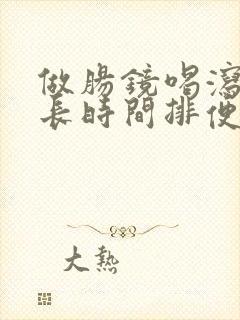 做腸鏡喝瀉
長時間排便
大熱